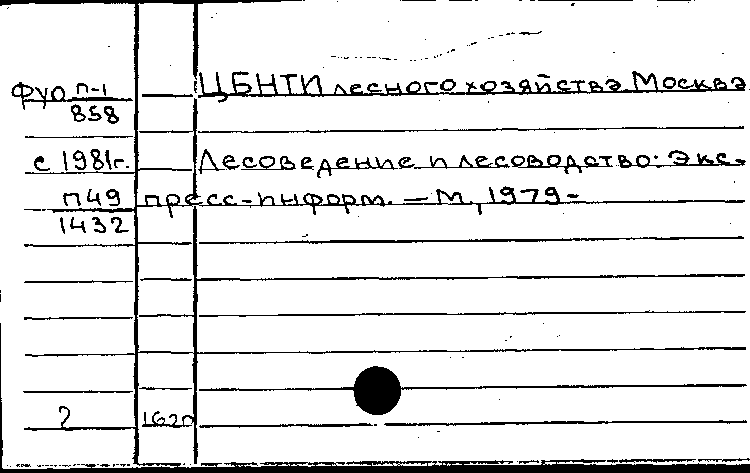 ФУО П-1 ЦБНТИ лесного хозяйства. Москва
858
с 1981г. Лесоведение и лесоводство: Экс-
П49 пресс-информ. — М., 1979-
1432
2 1620